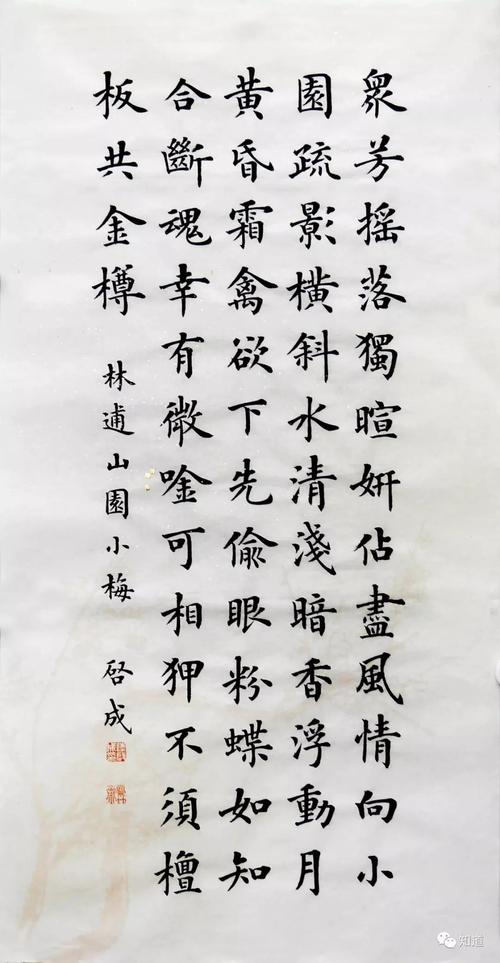 眾芳摇落獨暄妍佔盡風情向小
園疏影横斜水清淺暗香浮動月
黄昏霜禽欲下先偷眼粉蝶如知
合斷魂幸有微唫可相狎不須檀
板共金樽
林逋山園小梅 啓成
知道